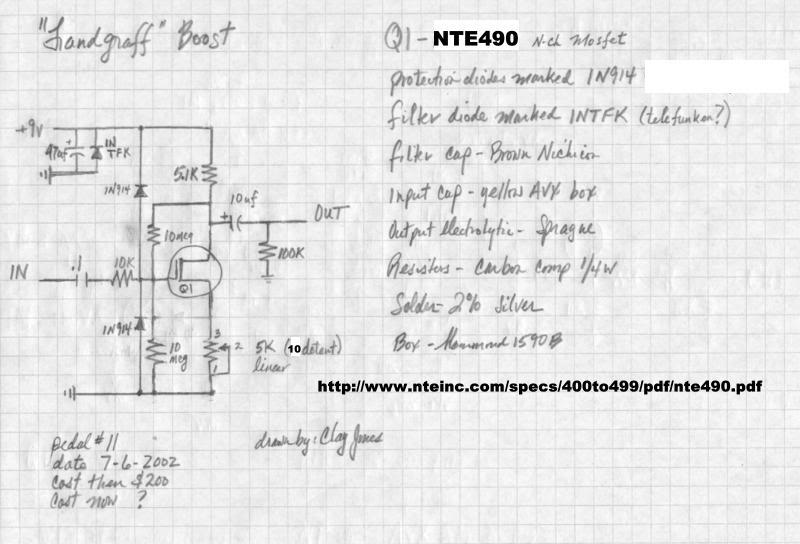 "Landgraff" Boost
Q1 - NTE490 N-ch Mosfet
protection diodes marked 1N914
filter diode marked INTFK (telefunken?)
filter cap - Brown Nichicon
Input cap - yellow AVX box
Output electrolytic - Sprague
Resistors - Carbon comp 1/4 w
Solder - 2% Silver
Box - Hammond 1590B
http://www.nteinc.com/specs/400to499/pdf/nte490.pdf
+9v
+
47uf
IN
TFK
5.1K
1N914
10uf
+
OUT
10meg
100K
IN
.1
10K
Q1
1N914
10
meg
3
2
1
5K (10 detent)
linear
pedal #11
date 7-6-2002
cost then $200
cost now ?
drawn by: Clay Jones